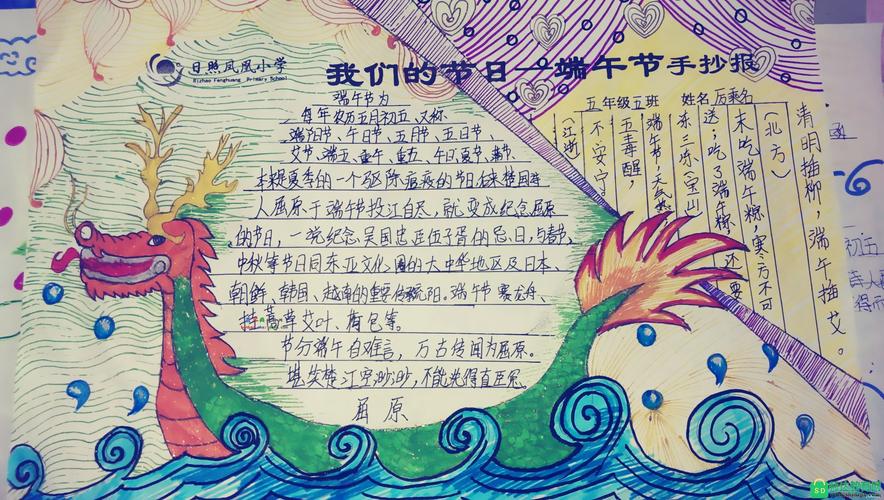 日照凤凰小学
Rizhao Fenghuang Primary School
我们的节日—端午节手抄报
五年级五班 姓名
端午节为
每年农历五月初五、又称
端阳节、午日节、五月节、五日节、
艾节、端五、重午、重五、午日、夏节、蒲节、
本来是夏季的一个驱除瘟疫的节日、后来楚国诗
人屈原于端午节投江自尽，就变成纪念屈原
的节日，一说纪念吴国忠臣伍子胥的忌日，与春节、
中秋等节日同东亚文化圈的大中华地区及日本、
朝鲜、韩国、越南的重要传统 端午节赛龙舟、
挂菖草艾叶、荷包等。
节分端午自谁言，万古传闻为屈原。
堪笑楚江空渺渺，不能洗得直臣冤
屈原
清明插柳，端午插艾。
(北方)
未吃端午粽，寒衣不可
送；吃了端午粽，还要
冻三冻(宝山
端午节，天气
五毒醒，
不安宁
(江浙)